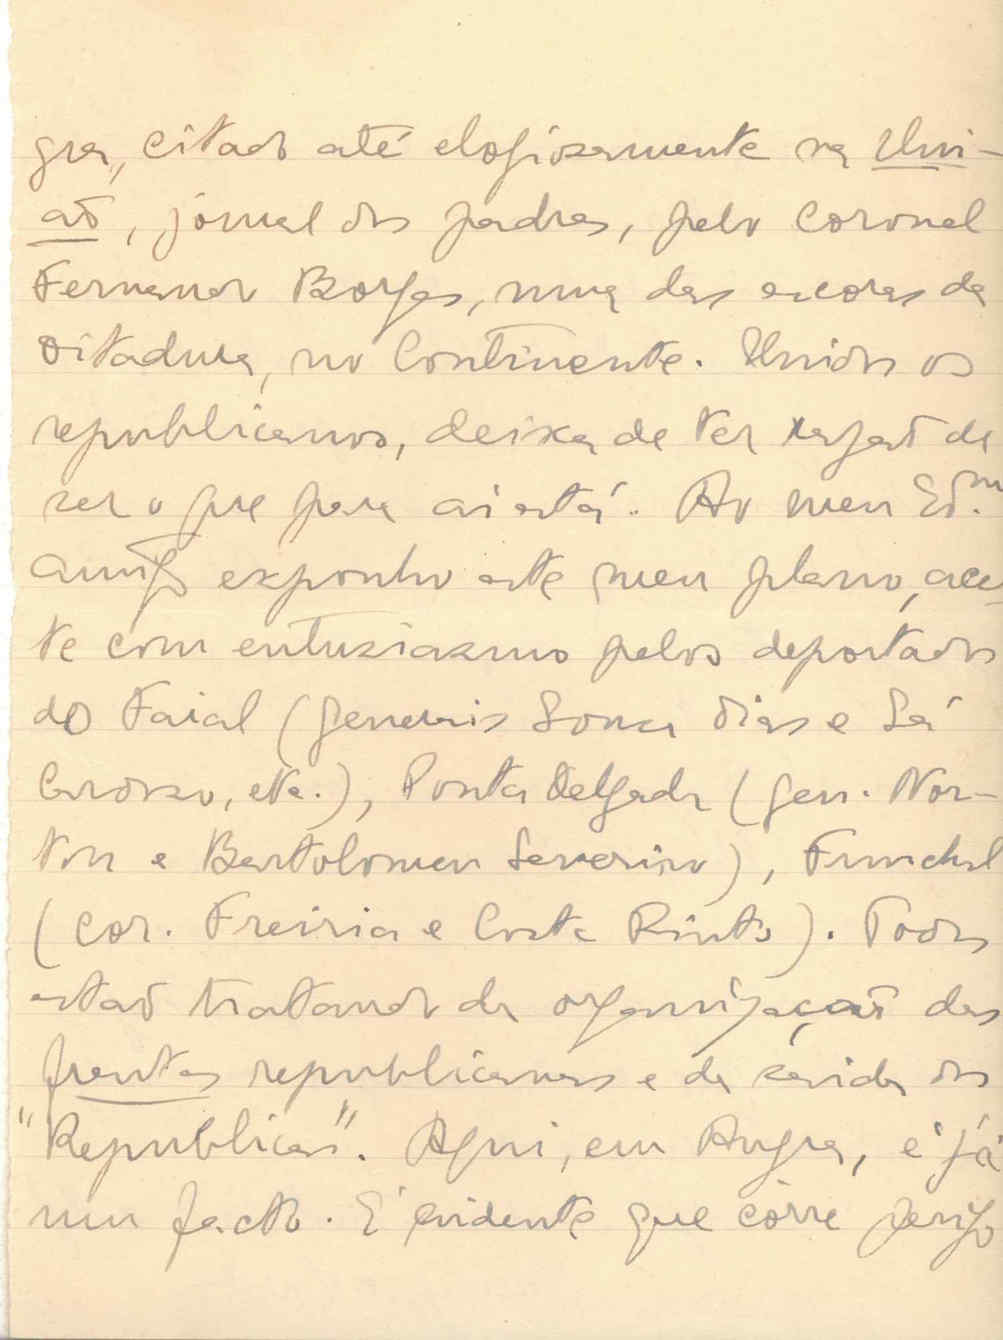 gra, citado até elogiozamente na Uni-
ão, jornal dos padres, pelo Coronel
Fernando Borges, uma das escoras da
Ditadura, no Continente. Unidos os
republicanos, deixa de ter razão de
ser o que para aí está. Ao meu Ed.mo
amigo exponho este meu plano, acei-
te com entuziazmo pelos deportados
do Faial (generais Sousa Dias e Sá
Cardozo, etc.), Ponta Delgada (gen. Nor-
ton e Bartolomeu Severino), Funchal
(cor. Freiria e Costa Pinto). Todos
estão tratando da organização das
frentes republicanas e da saida dos
"Republicas". Aqui, em Angra, é já
um facto. É evidente que córre perigo